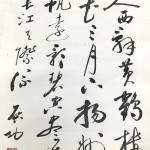 人西辞黄鶴樓
花三月下揚州
帆遠影碧空盡
長江天際流
启功